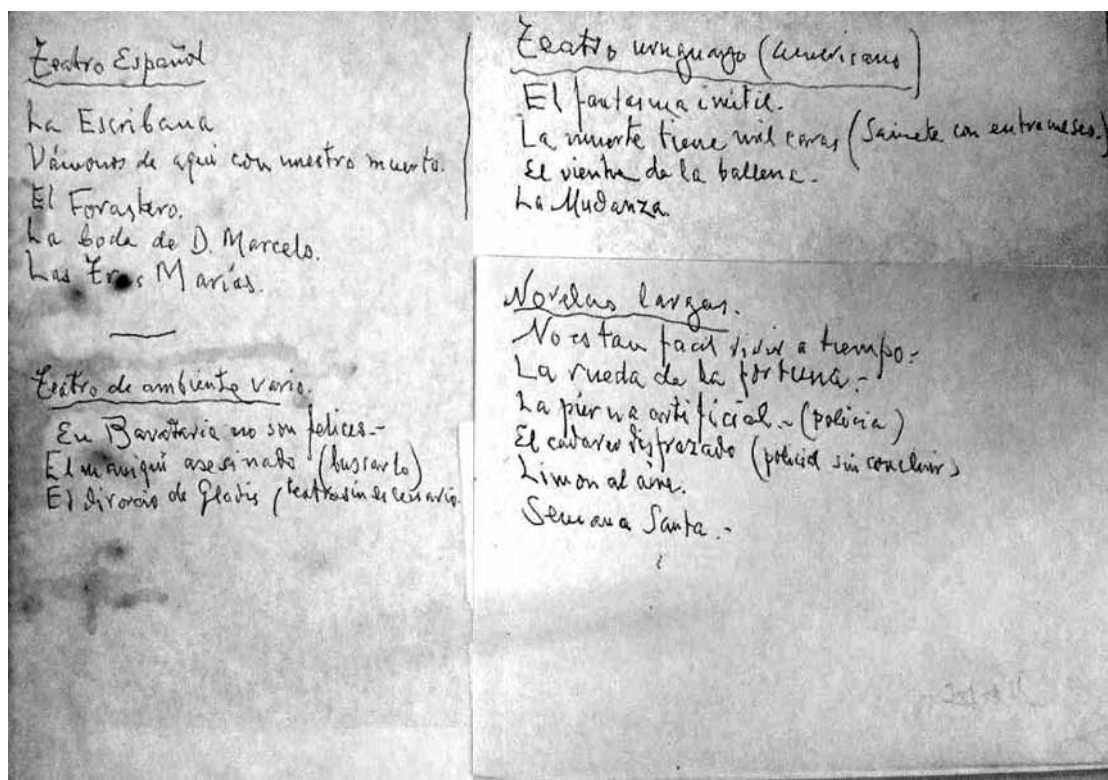 Teatro Español
La Escribana
Vámonos de aqui con nuestro muerto.
El Forastero.
La boda de D. Marcelo.
Las Tres Marías.
Teatro de ambiente vario.
En Baratária no son felices.-
El maniquí asesinado (buscarlo)
El divorcio de Gladis (teatro sin escenario.
Teatro uruguayo (americano)
El fantasma inútil.
La muerte tiene mil caras (Sainete con entremeses.)
El vientre de la ballena.-
La Mudanza.
Novelas largas.
No es tan facil vivir a tiempo.-
La rueda de la fortuna.-
La pierna artificial.- (policia)
El cadaver disfrazado (policial sin concluir)
Limon al aire.
Semana Santa.-